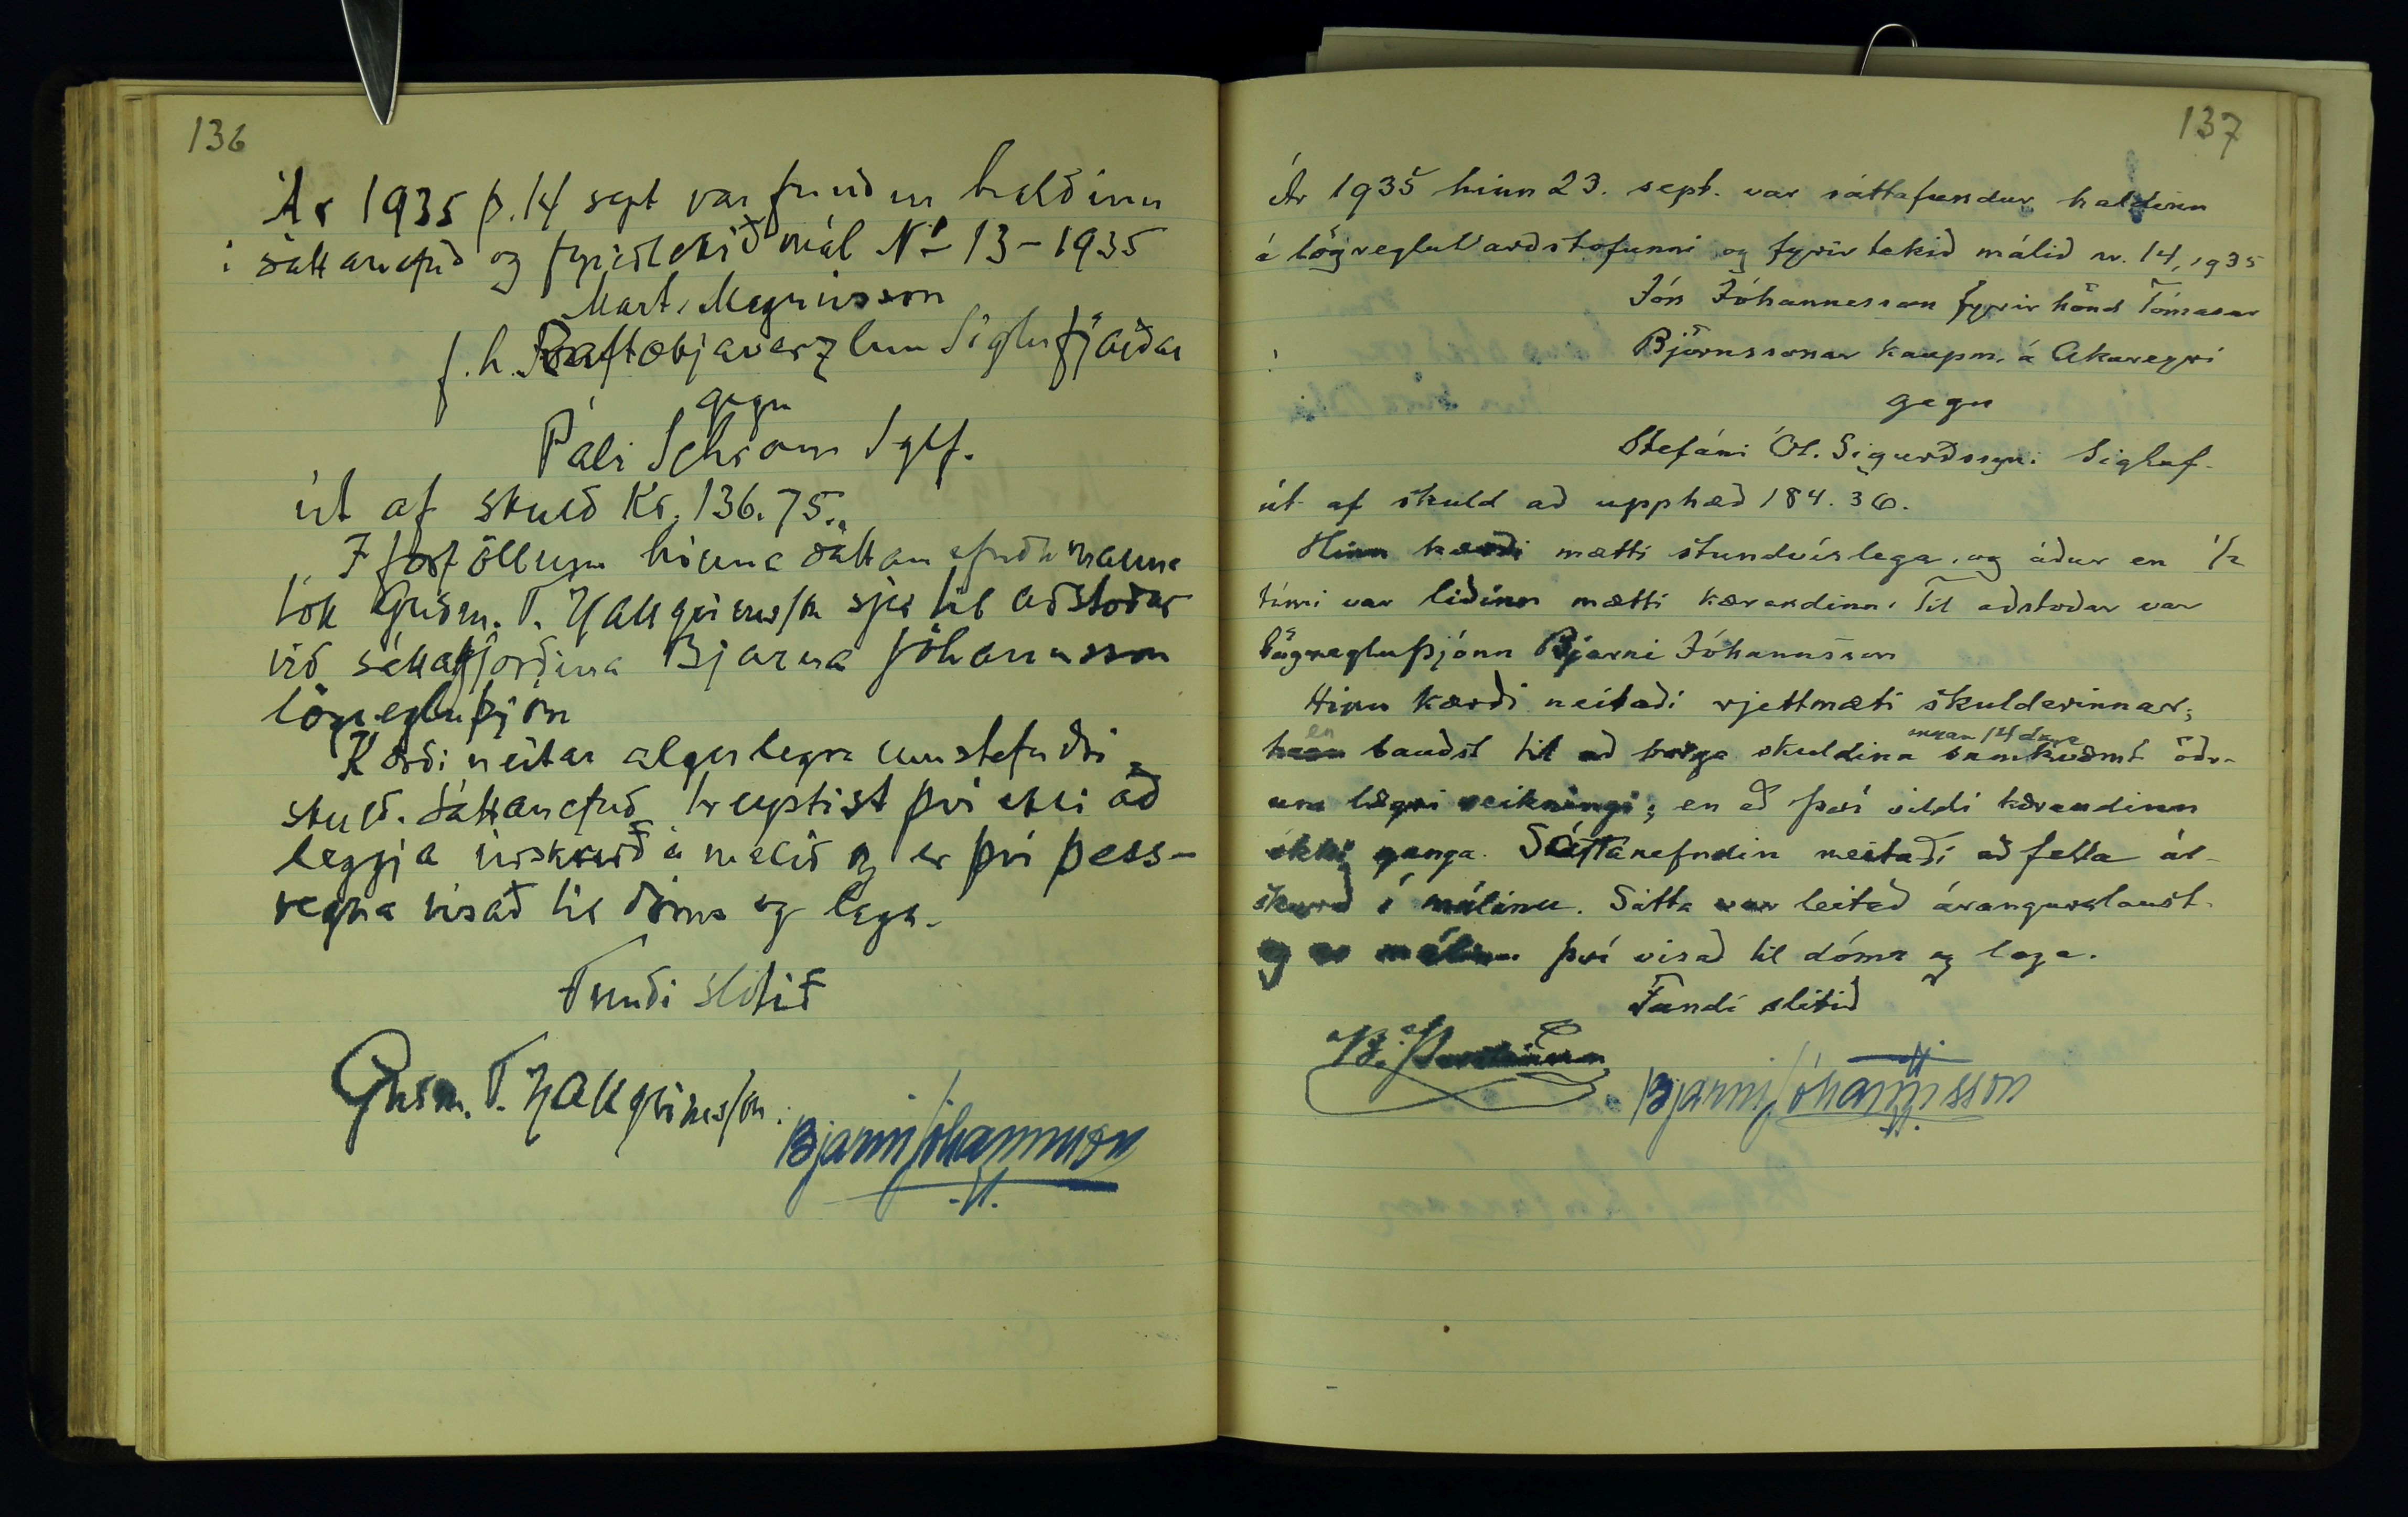 136
Ár 1935 þ. 14 sept var fundur haldinn
í sáttanefnd og fyrirtekið mál No 13-1935
Mart. Magnússon
f.h. Raftækjaverzlun Siglufjarðar
gegn
Páli Schram Sglf.
út af skuld Kr. 136.75.
Í forföllum hinna sáttanefndamanna
tók Guðm. T. Hallgrímss/on sjer til aðstoðar
við sáttagjörðina Bjarna Jóhannsson
lögregluþjón
Kærði neitar algerlega umstefndri
skuld. Sáttanefnd treystist því ekki að
leggja úrskurð á málið og er því þess-
vegna vísað til dóms og laga.
Fundi slitið
Guðm. T. Hallgrímss/on.
Bjarni Jóhannsson
137
Ár 1935 hinn 23. sept. var sáttafundur haldinn
á lögregluvarðstofunni og fyrir tekið málið nr. 14, 1935
Jón Jóhannesson fyrir hönd Tómasar
Björnssonar kaupm. á Akureyri
gegn
Stefáni Ól. Sigurðssyni Sigluf.
út af skuld að upphæð 184.36.
Hinn kærði mætti stundvíslega, og áður en 1/2
tími var liðinn mætti kærandinn. Til aðstoðar var
lögregluþjónn Bjarni Jóhannsson
Hinn kærði neitaði rjettmæti skuldarinnar;
en
innan 14 daga
hann bauðst til að borga skuldina samkvæmt öðr-
um lægri reikningi; en að því vildi kærandinn
ekki ganga. Sáttanefndin neitaði að fella úr-
skurð í málinu. Sátta var leitað árangurslaust
og er málinu því vísað til dóms og laga.
Fundi slitið
Bjarni Jóhannsson